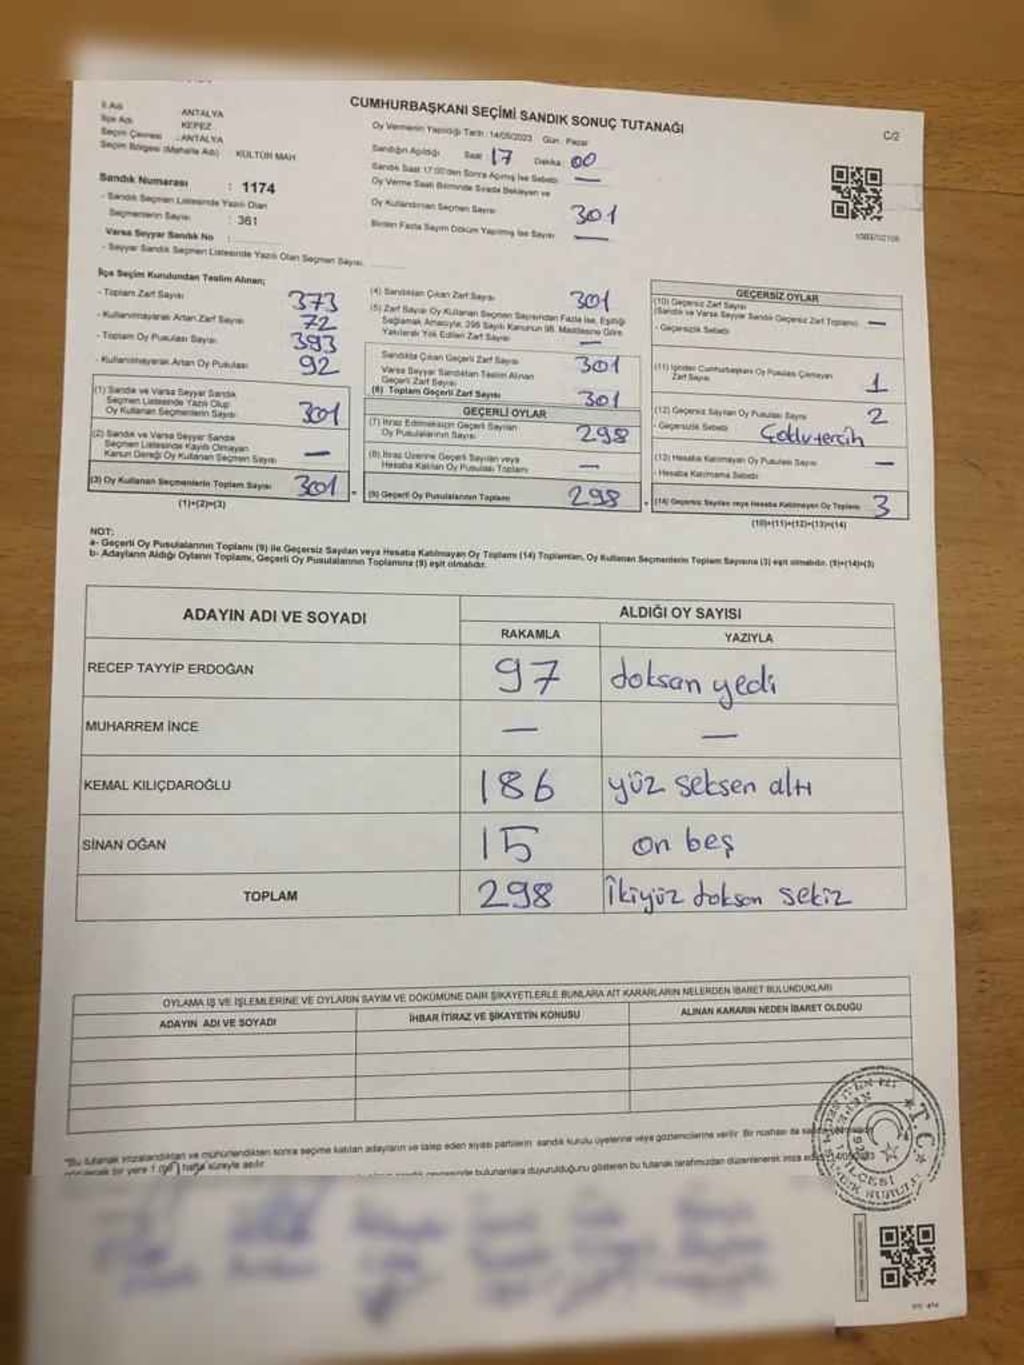 CUMHURBAŞKANI SEÇİMİ SANDIK SONUÇ TUTANAĞI
C/2
İl Adı : ANTALYA
İlçe Adı : KEPEZ
Seçim Çevresi : ANTALYA
Seçim Bölgesi (Mahalle Adı) : KÜLTÜR MAH
Sandık Numarası : 1174
- Sandık Seçmen Listesinde Yazılı Olan
Seçmenlerin Sayısı : 361
Varsa Seyyar Sandık No :
- Seyyar Sandık Seçmen Listesinde Yazılı Olan Seçmen Sayısı
Oy Vermenin Yapıldığı Tarih : 14/05/2023 Gün : Pazar
Sandığın Açıldığı Saat : 17 Dakika : 00
Sandık Saat 17:00'den Sonra Açılmış İse Sebebi —
Oy Verme Saati Bitiminde Sırada Bekleyen ve
Oy Kullandırılan Seçmen Sayısı 301
Birden Fazla Sayım Döküm Yapılmış İse Sayısı —
İlçe Seçim Kurulundan Teslim Alınan;
- Toplam Zarf Sayısı 373
- Kullanılmayarak Artan Zarf Sayısı 72
- Toplam Oy Pusulası Sayısı 393
- Kullanılmayarak Artan Oy Pusulası 92
(1) Sandık ve Varsa Seyyar Sandık
Seçmen Listesinde Yazılı Olup
Oy Kullanan Seçmenlerin Sayısı 301
(2) Sandık ve Varsa Seyyar Sandık
Seçmen Listesinde Kayıtlı Olmayan
Kanun Gereği Oy Kullanan Seçmen Sayısı —
(3) Oy Kullanan Seçmenlerin Toplam Sayısı 301
(1)+(2)=(3)
(4) Sandıktan Çıkan Zarf Sayısı 301
(5) Zarf Sayısı Oy Kullanan Seçmen Sayısından Fazla İse, Eşitliği
Sağlamak Amacıyla, 298 Sayılı Kanunun 98. Maddesine Göre
Yakılarak Yok Edilen Zarf Sayısı —
Sandıkta Çıkan Geçerli Zarf Sayısı 301
Varsa Seyyar Sandıktan Teslim Alınan
Geçerli Zarf Sayısı
(6) Toplam Geçerli Zarf Sayısı 301
GEÇERLİ OYLAR
(7) İtiraz Edilmeksizin Geçerli Sayılan
Oy Pusulalarının Sayısı 298
(8) İtiraz Üzerine Geçerli Sayılan veya
Hesaba Katılan Oy Pusulaları Toplamı —
(9) Geçerli Oy Pusulalarının Toplamı 298
GEÇERSİZ OYLAR
(10) Geçersiz Zarf Sayısı
(Sandık ve Varsa Seyyar Sandık Geçersiz Zarf Toplamı) —
- Geçersizlik Sebebi
(11) İçinden Cumhurbaşkanı Oy Pusulası Çıkmayan
Zarf Sayısı 1
(12) Geçersiz Sayılan Oy Pusulası Sayısı 2
- Geçersizlik Sebebi Çoklu tercih
(13) Hesaba Katılmayan Oy Pusulası Sayısı —
- Hesaba Katılmama Sebebi
(14) Geçersiz Sayılan veya Hesaba Katılmayan Oy Toplamı 3
(10)+(11)+(12)+(13)=(14)
NOT:
a- Geçerli Oy Pusulalarının Toplamı (9) ile Geçersiz Sayılan veya Hesaba Katılmayan Oy Toplamı (14) Toplamları, Oy Kullanan Seçmenlerin Toplam Sayısına (3) eşit olmalıdır. (9)+(14)=(3)
b- Adayların Aldığı Oyların Toplamı, Geçerli Oy Pusulalarının Toplamına (9) eşit olmalıdır.
ADAYIN ADI VE SOYADI ALDIĞI OY SAYISI
RAKAMLA YAZIYLA
RECEP TAYYİP ERDOĞAN 97 doksan yedi
MUHARREM İNCE — —
KEMAL KILIÇDAROĞLU 186 yüz seksen altı
SİNAN OĞAN 15 on beş
TOPLAM 298 İkiyüz doksan sekiz
OYLAMA İŞ VE İŞLEMLERİNE VE OYLARIN SAYIM VE DÖKÜMÜNE DAİR ŞİKAYETLERLE BUNLARA AİT KARARLARIN NELERDEN İBARET BULUNDUKLARI
ADAYIN ADI VE SOYADI İHBAR İTİRAZ VE ŞİKAYETİN KONUSU ALINAN KARARIN NEDEN İBARET OLDUĞU
"Bu tutanak imzalandıktan ve mühürlendikten sonra seçime katılan adayların ve talep eden siyasi partilerin sandık kurulu üyelerine veya gözlemcilerine verilir. Bir nüshası da
bir yere 1 hafta süreyle asılır.
bulunanlara duyurulduğunu gösteren bu tutanak tarafımızdan düzenlenerek imza
T.C.